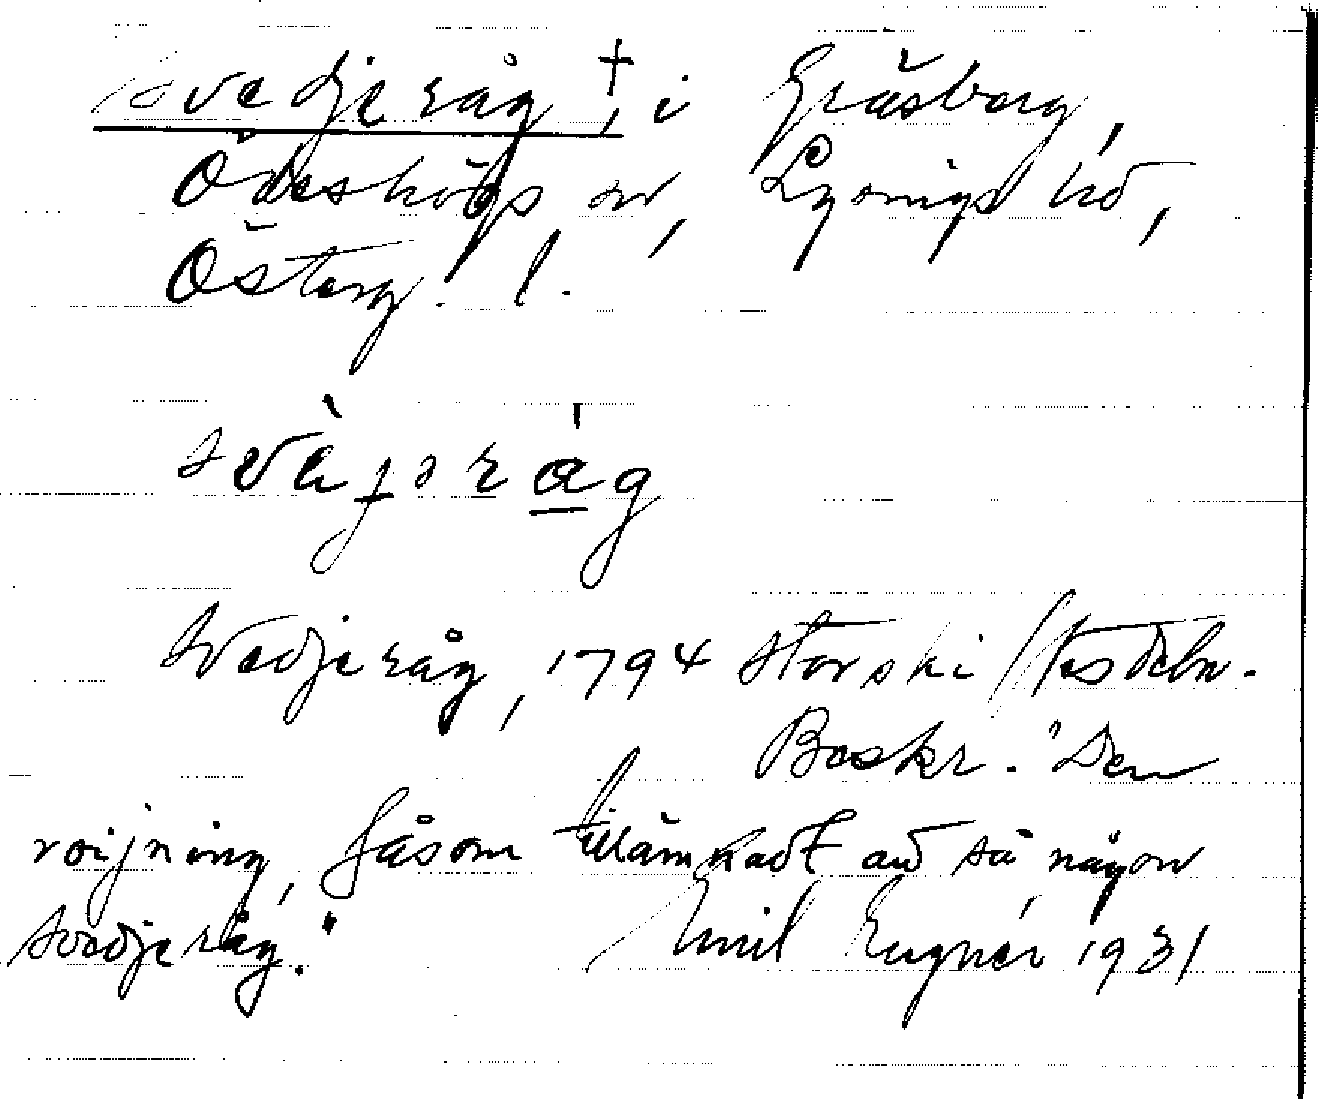 Svedjeråg †, i Gräsberg,
Ödeshögs sn, Lysings hd,
Österg. l.
svàjəråg
Svedjeråg, 1794 storski
Beskr. "Den
roijning, såsom tillämnadt att så någon
svedjeråg."  Emil Eugnér 1931